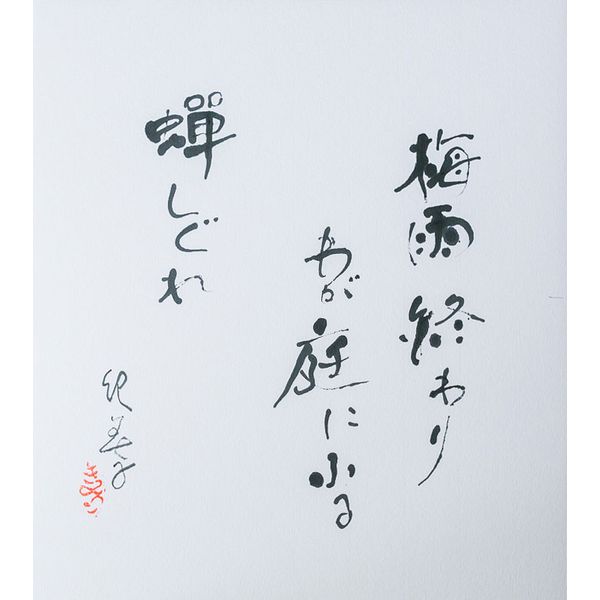 梅雨終わり
わが庭にふる
蝉しぐれ
紀美子